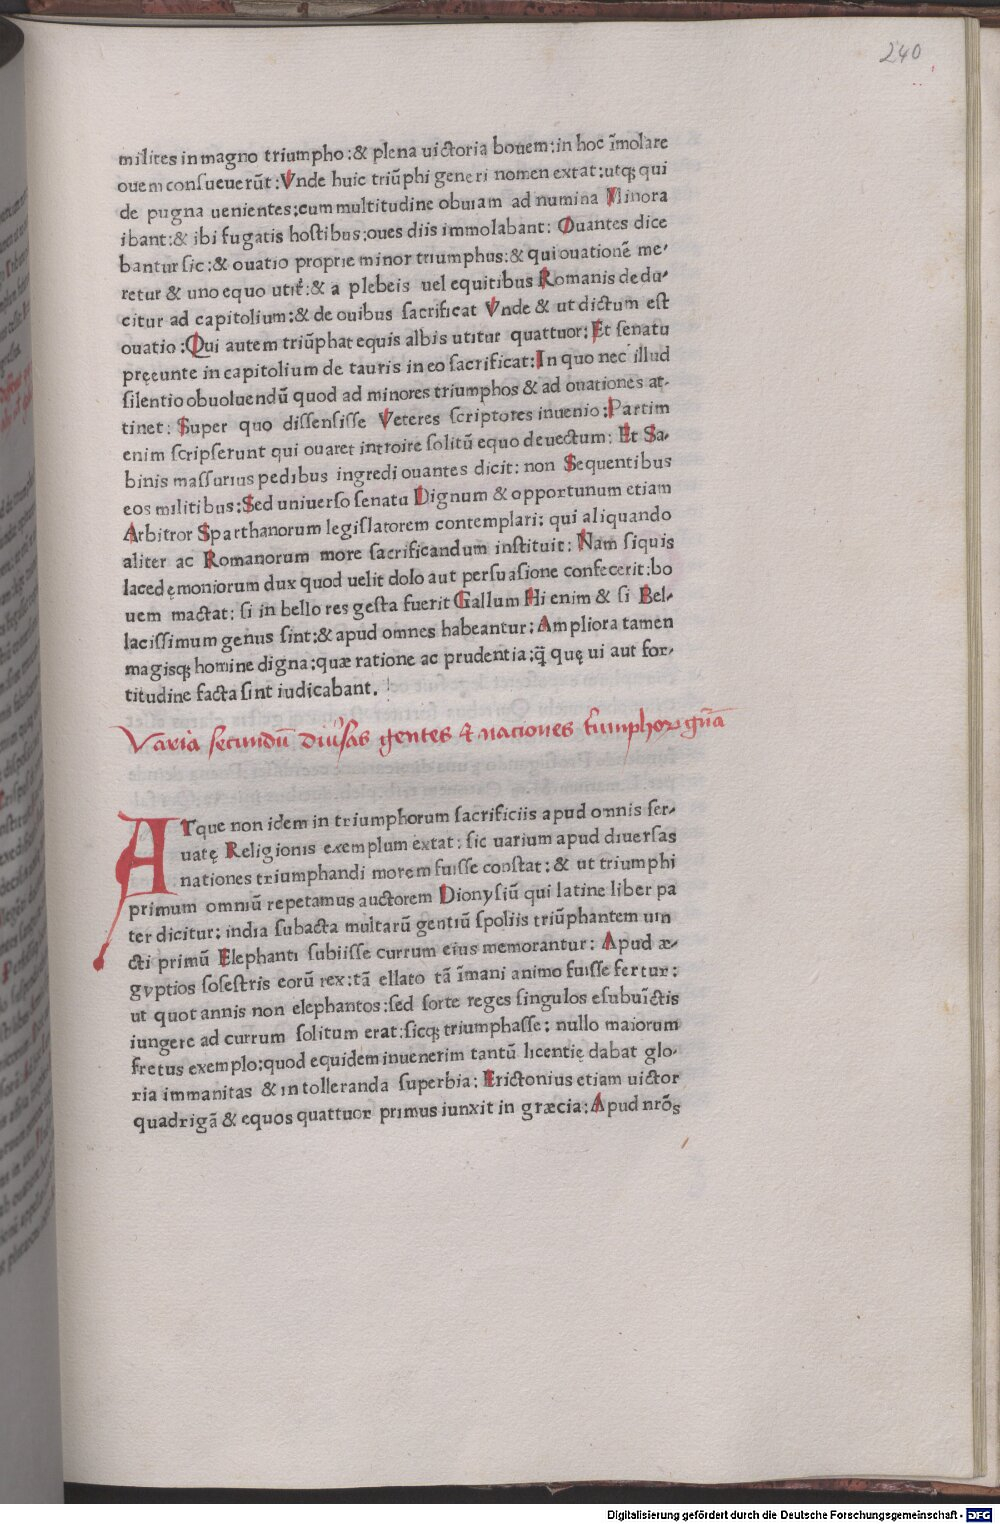 240
milites in magno triumpho: & plena uictoria bouem: in hoc ĩmolare
ouem consueuerũt: Vnde huic triũphi generi nomen extat: utqꝫ qui
de pugna uenientes: cum multitudine obuiam ad numina Minora
ibant: & ibi fugatis hostibus: oues diis immolabant: Ouantes dice
bantur sic: & ouatio proprie minor triumphus: & qui ouationẽ me-
retur & uno equo utit̃: & a plebeis uel equitibus Romanis dedu-
citur ad capitolium: & de ouibus sacrificat Vnde & ut dictum est
ouatio: Qui autem triũphat equis albis utitur quattuor: Et senatu
pręeunte in capitolium de tauris in eo sacrificat: In quo nec illud
silentio obuoluendũ quod ad minores triumphos & ad ouationes at-
tinet: Super quo dissensisse Veteres scriptores inuenio: Partim
enim scripserunt qui ouaret introire solitũ equo deuectum: Et Sa-
binis massurius pedibus ingredi ouantes dicit: non Sequentibus
eos militibus: Sed uniuerso senatu Dignum & opportunum etiam
Arbitror Sparthanorum legislatorem contemplari: qui aliquando
aliter ac Romanorum more sacrificandum instituit: Nam siquis
lacedęmoniorum dux quod uelit dolo aut persuasione confecerit: bo
uem mactat: si in bello res gesta fuerit Gallum Hi enim & si Bel-
lacissimum genus sint: & apud omnes habeantur: Ampliora tamen
magisqꝫ homine digna: quæ ratione ac prudentia: q̃ quę ui aut for-
titudine facta sint iudicabant.
Varia secundũ diũsas gentes & naciones triumphoꝝ gña
ATque non idem in triumphorum sacrificiis apud omnis ser-
uatę Religionis exemplum extat: sic uarium apud diuersas
nationes triumphandi morem fuisse constat: & ut triumphi
primum omniũ repetamus auctorem Dionysiũ qui latine liber pa
ter dicitur: india subacta multarũ gentiũ spoliis triũphantem uin
cti primũ Elephanti subiisse currum eius memorantur: Apud æ-
gyptios sosestris eorũ rex: tã ellato tã ĩmani animo fuisse fertur:
ut quot annis non elephantos: sed sorte reges singulos e subuĩctis
iungere ad currum solitum erat: sicqꝫ triumphasse: nullo maiorum
fretus exemplo: quod equidem inuenerim tantũ licentię dabat glo-
ria immanitas & intolleranda superbia: Erictonius etiam uictor
quadrigã & equos quattuor primus iunxit in græcia: Apud nr̃os
Digitalisierung gefördert durch die Deutsche Forschungsgemeinschaft - DFG